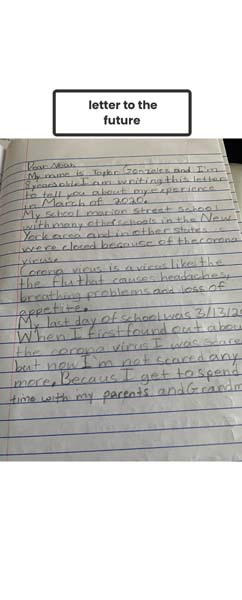 letter to the
future
Dear Noah,
My name is Taylor Gonzales and I'm
8 years old. I am writing this letter
to tell you about my experience
in March of 2020.
My school marion street school
with many other schools in the New
York area and in other states
were closed because of the corona
virus.
Corona virus is a virus like the
the flu that causes headaches,
breathing problems and loss of
appetite.
My last day of school was 3/13/20
When I first found out abou
the corona virus I was scare
but now I'm not scared any
more. Becaus I get to spend
time with my parents and Grandm